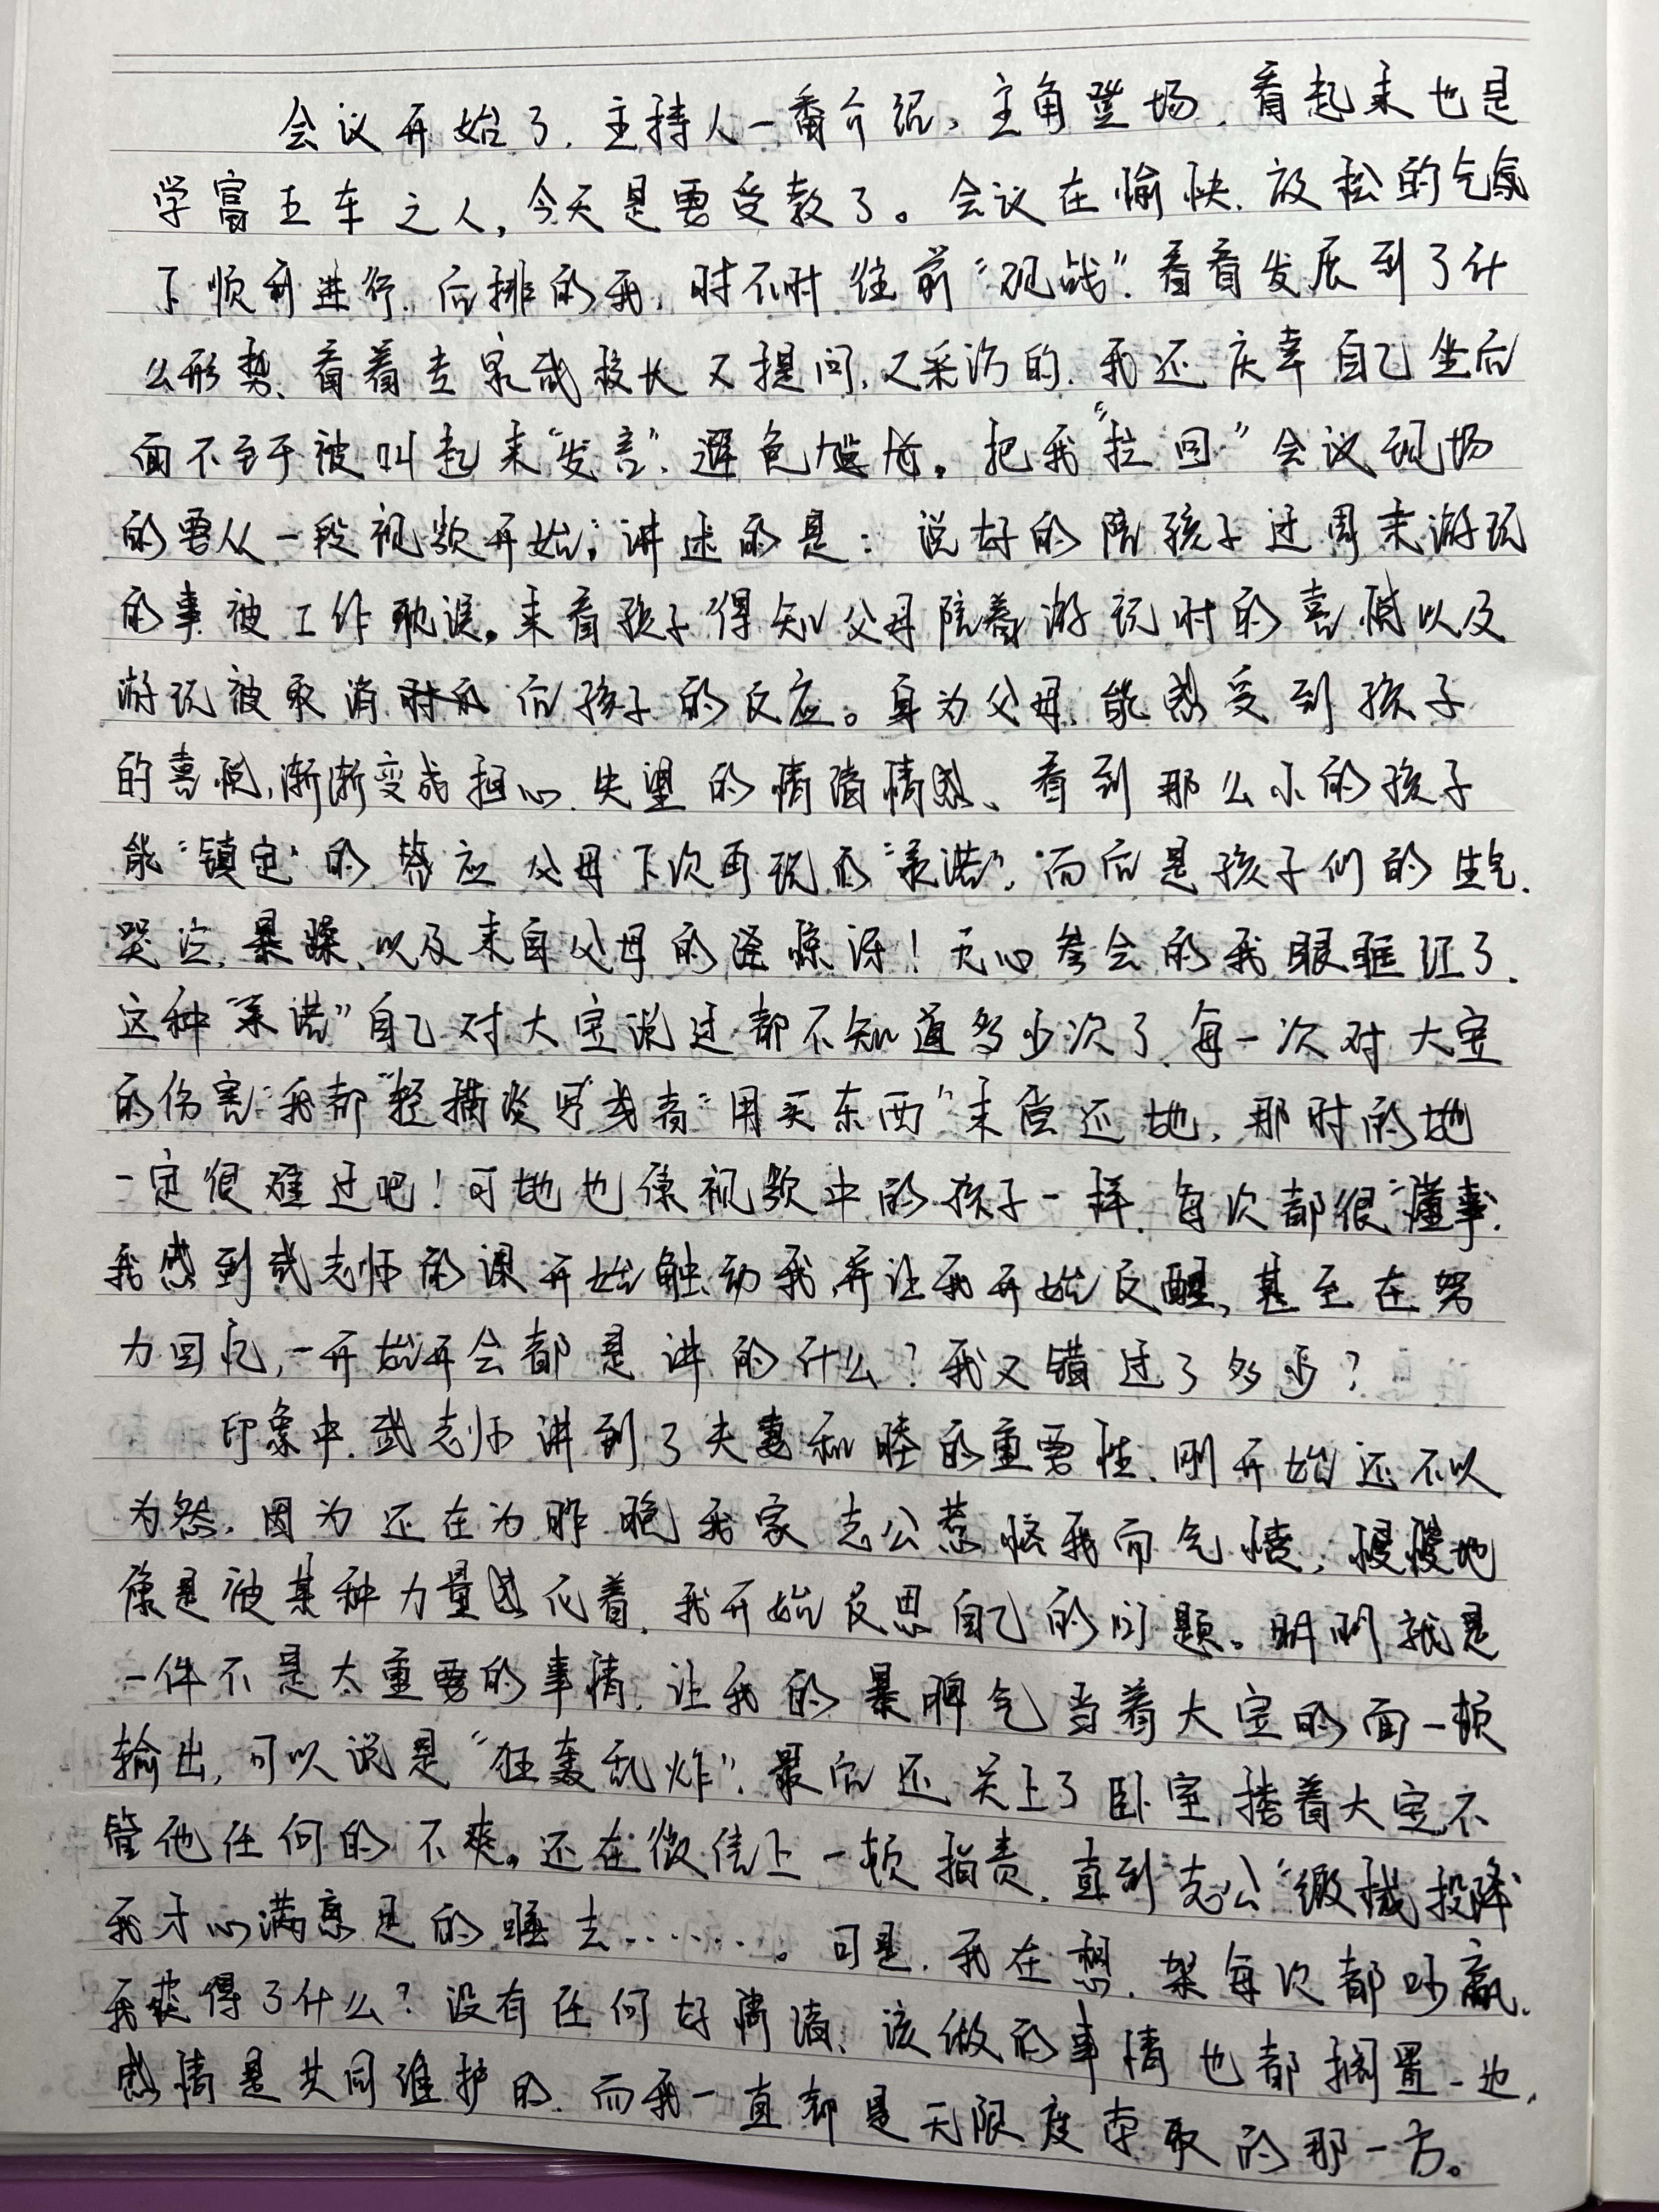 会议开始了.主持人一番介绍,主角登场.看起来也是
学富五车之人,今天是要受教了。会议在愉快.放松的气氛
下顺利进行.后排的我,时不时往前“观战”.看看发展到了什
么形势、看着专家或校长又提问,又采访的.我还庆幸自己坐后
面不至于被叫起来“发言”.避免尴尬。把我“拉回”会议现场
的要从一段视频开始;讲述的是:说好的陪孩子过周末游玩
的事被工作耽误。来看孩子得知父母陪着游玩时的喜悦以及
游玩被取消后孩子的反应。身为父母.能感受到孩子
的喜悦,渐渐变成担心.失望的情绪情感、看到那么小的孩子
能“镇定”的答应父母下次再玩的“承诺”.而后是孩子们的生气.
哭泣.暴躁.以及来自父母的惊讶!无心参会的我眼眶红了.
这种“承诺”自己对大宝说过都不知道多少次了.每一次对大宝
的伤害.我都“轻描淡写”或者“用买东西”来偿还她,那时的她
一定很难过吧!可她也像视频中的孩子一样.每次都很“懂事”.
我感到武老师的课开始触动我.并让我开始反醒,甚至在努
力回忆,一开始开会都是讲的什么?我又错过了多少?
印象中.武老师讲到了夫妻和睦的重要性.刚开始还不以
为然.因为还在为昨晚我家老公惹怒我而气愤,慢慢地
像是被某种力量感化着.我开始反思自己的问题。明明就是
一件不是太重要的事情.让我的暴脾气当着大宝的面一顿
输出,可以说是“狂轰乱炸”.最后还关上了卧室,搂着大宝,不
管他任何的不爽。还在微信上一顿指责.直到老公“缴械投降”
我才心满意足的睡去.......。可是.我在想.架每次都吵赢.
我获得了什么?没有任何好情绪、该做的事情也都搁置一边,
感情是共同维护的.而我一直都是无限度索取的那一方。